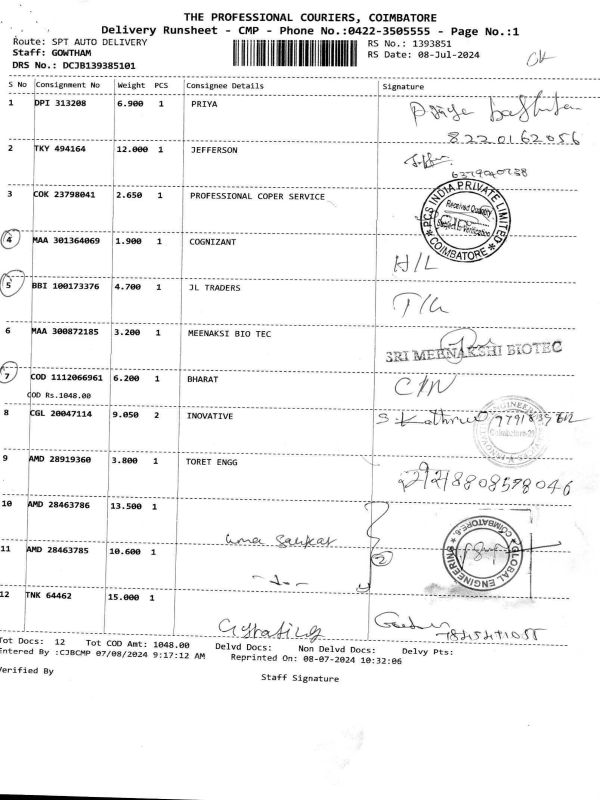 THE PROFESSIONAL COURIERS, COIMBATORE
Delivery Runsheet - CMP - Phone No.:0422-3505555 - Page No.:1
Route: SPT AUTO DELIVERY RS No.: 1393851
Staff: GOWTHAM RS Date: 08-Jul-2024
DRS No.: DCJB139385101 OK
S No Consignment No Weight PCS Consignee Details Signature
1 DPI 313208 6.900 1 PRIYA Priya
8220162056
2 TKY 494164 12.000 1 JEFFERSON
3 COK 23798041 2.650 1 PROFESSIONAL COPER SERVICE
PCS INDIA PRIVATE LIMITED
Received Quantity
Subject to Verification
COIMBATORE
4 MAA 301364069 1.900 1 COGNIZANT
H/L
5 BBI 100173376 4.700 1 JL TRADERS
6 MAA 300872185 3.200 1 MEENAKSI BIO TEC
SRI MEENAKSHI BIOTEC
7 COD 1112066961 6.200 1 BHARAT
COD Rs.1048.00
8 CGL 20047114 9.050 2 INOVATIVE
9 AMD 28919360 3.800 1 TORET ENGG
8808598046
10 AMD 28463786 13.500 1
Uma Sankar
11 AMD 28463785 10.600 1
2
GLOBAL ENGINEERING
COIMBATORE-6
12 TNK 64462 15.000 1
Tot Docs: 12 Tot COD Amt: 1048.00 Delvd Docs: Non Delvd Docs: Delvy Pts:
Entered By :CJBCMP 07/08/2024 9:17:12 AM Reprinted On: 08-07-2024 10:32:06
Verified By
Staff Signature